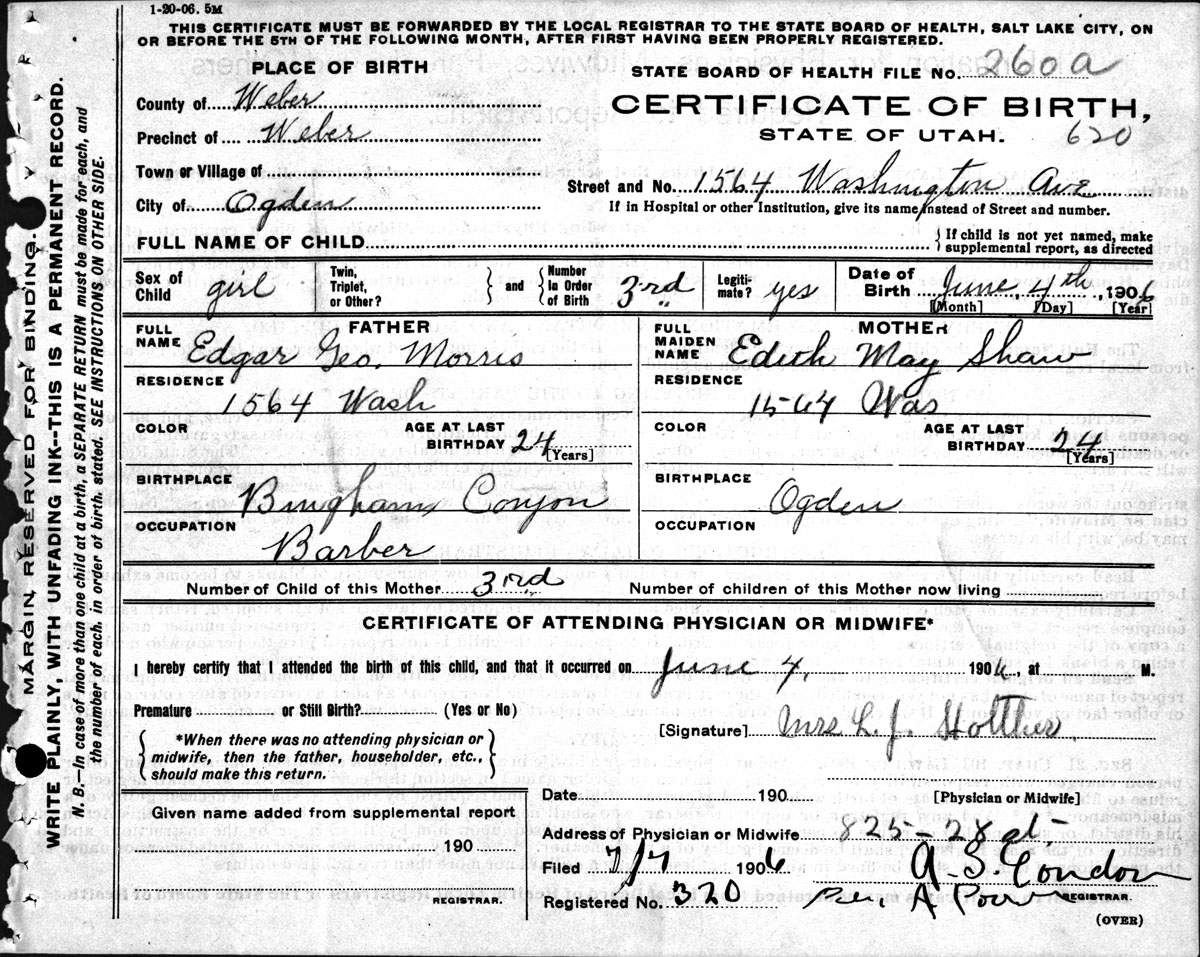 1-20-06. 5M
THIS CERTIFICATE MUST BE FORWARDED BY THE LOCAL REGISTRAR TO THE STATE BOARD OF HEALTH, SALT LAKE CITY, ON
OR BEFORE THE 5TH OF THE FOLLOWING MONTH, AFTER FIRST HAVING BEEN PROPERLY REGISTERED.
PLACE OF BIRTH
STATE BOARD OF HEALTH FILE NO. 260a
County of Weber
CERTIFICATE OF BIRTH,
Precinct of Weber
STATE OF UTAH. 620
Town or Village of
Street and No. 1564 Washington Ave
City of Ogden
If in Hospital or other Institution, give its name instead of Street and number.
FULL NAME OF CHILD
{If child is not yet named, make
supplemental report, as directed
Sex of Child girl
Twin, Triplet, or Other?
and
Number In Order of Birth 3rd
Legiti- mate? yes
Date of Birth June, 4th, 1906
[Month] [Day] [Year]
FATHER
FULL NAME Edgar Geo. Morris
RESIDENCE
1564 Wash
COLOR
AGE AT LAST BIRTHDAY 24
[Years]
BIRTHPLACE
Bingham Conyon
OCCUPATION
Barber
MOTHER
FULL MAIDEN NAME Edith May Shaw
RESIDENCE
1564 Was
COLOR
AGE AT LAST BIRTHDAY 24
[Years]
BIRTHPLACE
Ogden
OCCUPATION
Number of Child of this Mother 3rd Number of children of this Mother now living
CERTIFICATE OF ATTENDING PHYSICIAN OR MIDWIFE*
I hereby certify that I attended the birth of this child, and that it occurred on June 4, 1906, at M.
Premature or Still Birth? (Yes or No)
[Signature] Mrs L. J.
{*When there was no attending physician or
midwife, then the father, householder, etc.,
should make this return.}
Date 190
[Physician or Midwife]
Given name added from supplemental report
190
REGISTRAR.
Address of Physician or Midwife 825-28 st-
Filed 7/7 1906 A. S. Condon
Registered No. 320
REGISTRAR.
(OVER)
MARGIN RESERVED FOR BINDING.
WRITE PLAINLY WITH UNFADING INK--THIS IS A PERMANENT RECORD.
N. B.—In case of more than one child at a birth, a SEPARATE RETURN must be made for each, and
the number of each, in order of birth, stated. SEE INSTRUCTIONS ON OTHER SIDE.